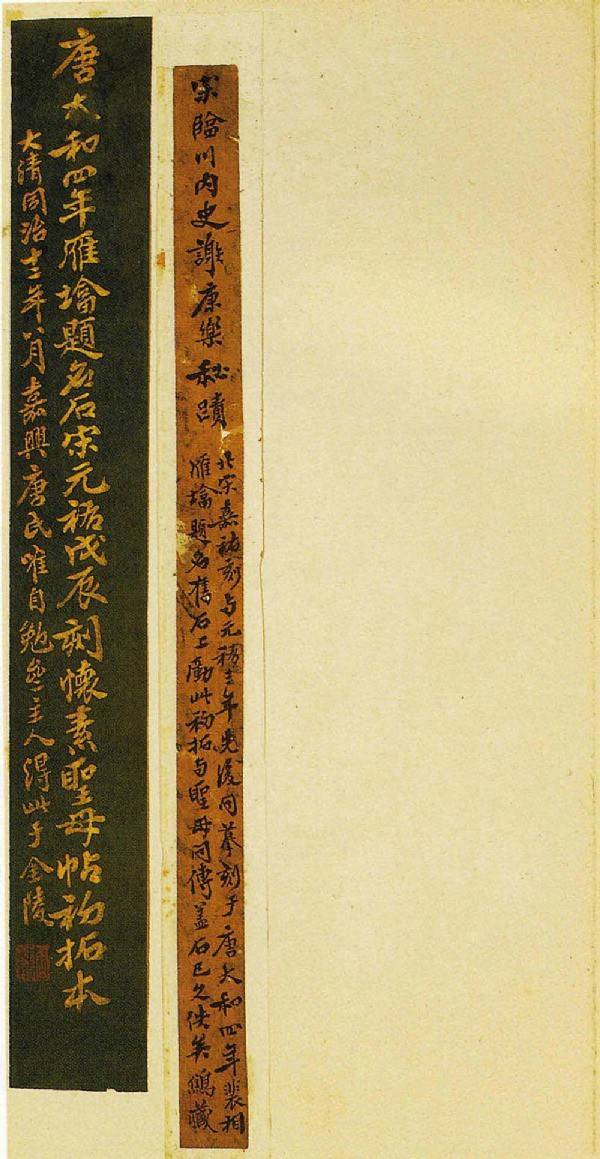 宋臨川内史謝康樂秘蹟
北宋嘉祐刻与元祐三年先後同摹刻于唐大和四年裴相
雁墖題名舊石上此初拓与聖母同傳蓋石已久佚矣鷦藏
唐大和四年雁墖題名石宋元祐戊辰刻懷素聖母帖初拓本
大清同治十三年八月嘉興唐氏唯自勉盦主人得此于金陵